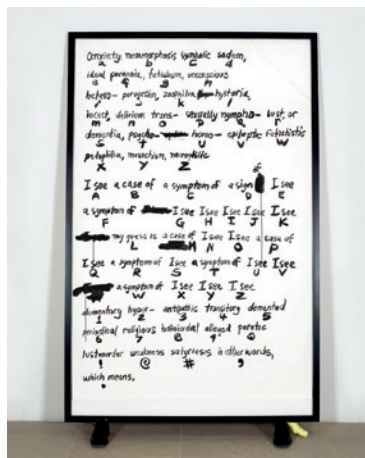 anxiety metamorphosis symbolic sadism,
a b c d
ideal paranoic, fetishism, unconscious
e g h
hetero- perversion, zoophilia hysteria,
i j k l
incest, delirium trans- sexually nympho- lust, or
m n o p Q r
dementia, psycho- homo- epileptic fetishistic
S T U V W
pedophilia, masochism, necrophilic
X Y Z
I see a case of a symptom of a sign of I see
A B C D E
a symptom of I see I see I see I see I see
F G H I J K
my guess is a case of I see I see a case of
L M N O P
I see a symptom of I see a symptom of I see I see
Q R S T U V
a symptom of I see I see I see
W X Y Z
elementary hyper- antipathic transitory demented
1 2 3 4 5
periodical religious behavioral alleged paretic
6 7 8 9 0
lustmurder weakness satyriasis in other words,
! @ # ,
which means.
.